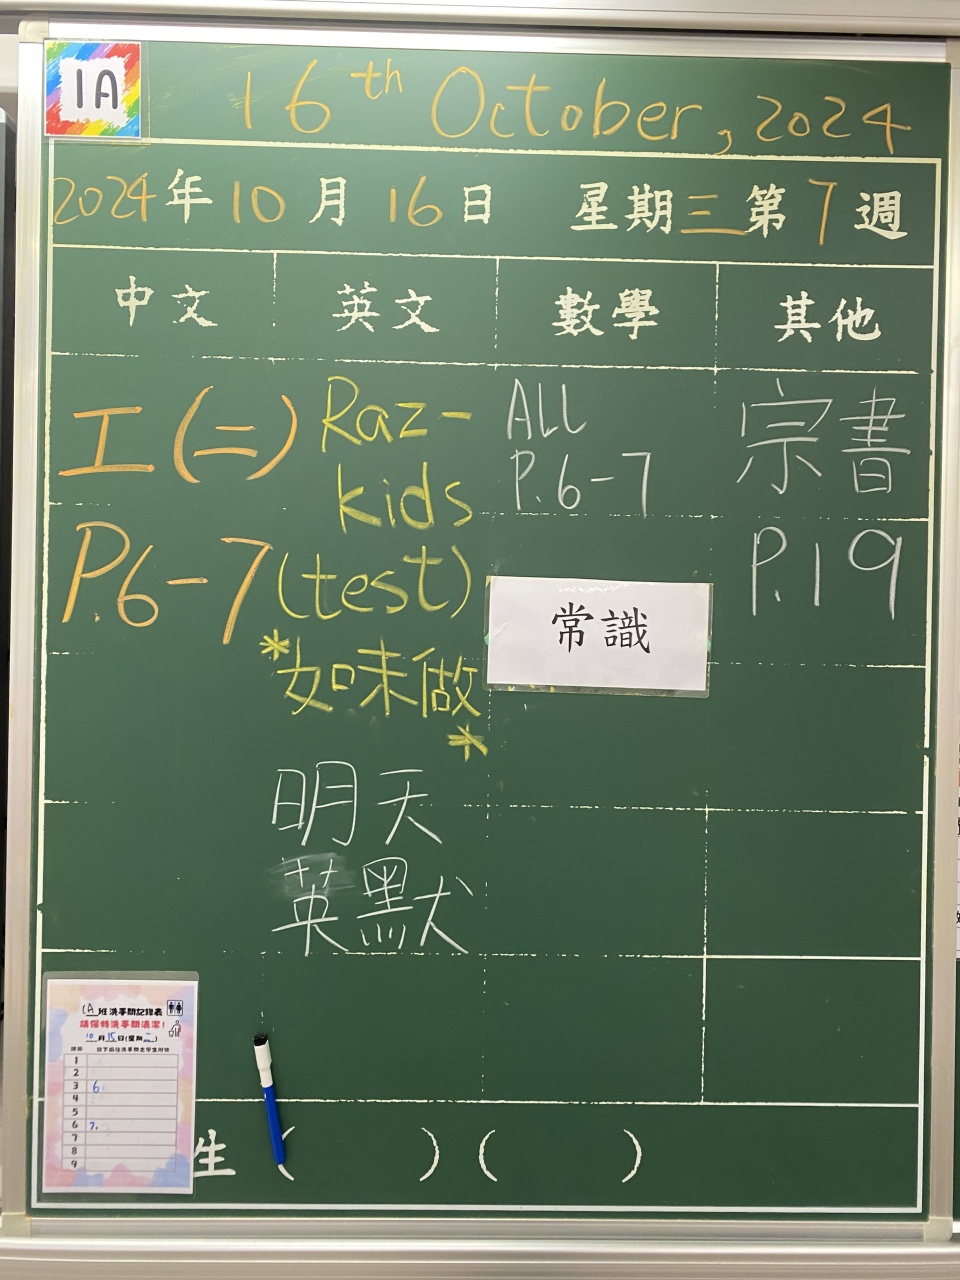 1A
16th October, 2024
2024年10月16日 星期三第7週
中文 英文 數學 其他
工(二)
P.6-7
Raz-
kids
(test)
*如未做
*
明天
英默
ALL
P.6-7
常識
宗書
P.19
1A班洗手間記錄表
請保持洗手間清潔!
10月15日(星期二)
1
2
3 6
4
5
6 7.
7
8
9
生 ( ) ( )